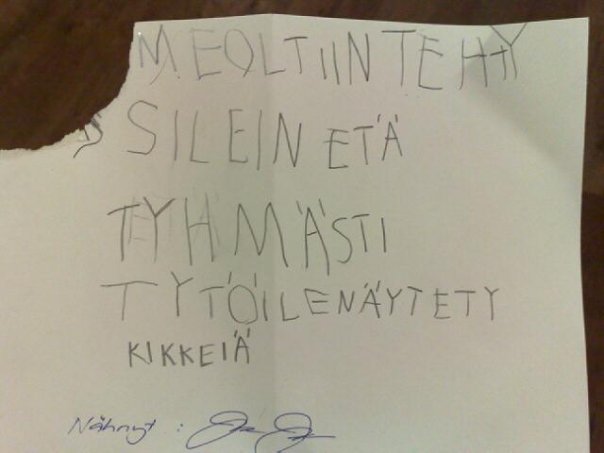 MEOLTIIN TEHTY
SILEIN ETÄ
TYHMÄSTI
TYTÖILENÄYTETY
KIKKEIÄ
Nähnyt :